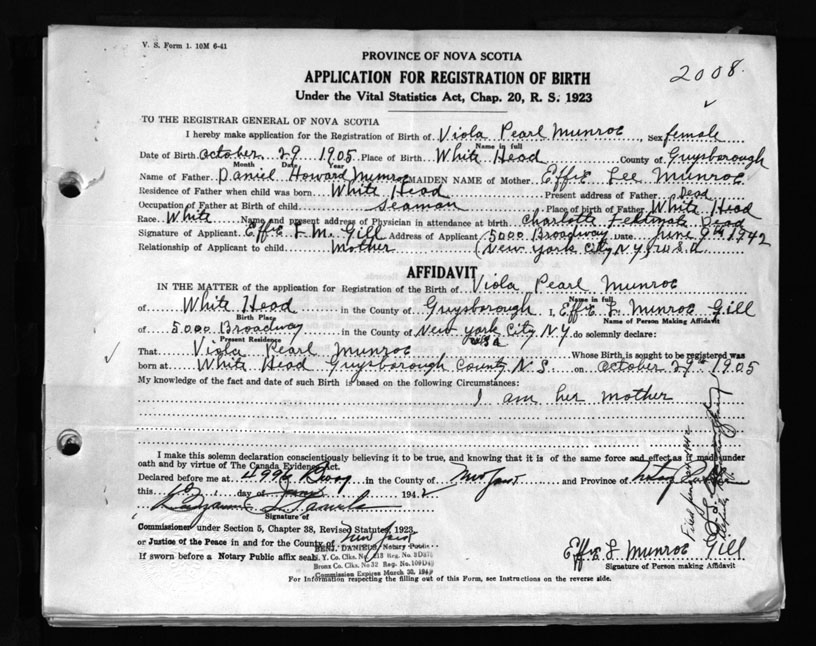 V. S. Form 1. 10M 6-41
PROVINCE OF NOVA SCOTIA
2008
APPLICATION FOR REGISTRATION OF BIRTH
Under the Vital Statistics Act, Chap. 20, R. S. 1923
TO THE REGISTRAR GENERAL OF NOVA SCOTIA
I hereby make application for the Registration of Birth of Viola Pearl Munroe, Sex female
Name in full
Date of Birth October 29 1905 Place of Birth White Head County of Guysborough
Month Day Year
Name of Father Daniel Howard Munroe MAIDEN NAME of Mother Effie Lee Munroe
Residence of Father when child was born White Head Present address of Father Dead
Occupation of Father at Birth of child Seaman Place of birth of Father White Head
Race White Name and present address of Physician in attendance at birth Charlotte Dead
Signature of Applicant Effie L. M. Gill Address of Applicant 5000 Broadway Date June 9th 1942
Relationship of Applicant to child Mother (New York City N.Y. U.S.A.
AFFIDAVIT
IN THE MATTER of the application for Registration of the Birth of Viola Pearl Munroe
Name in full
of White Head in the County of Guysborough I, Effie L. Munroe Gill
Birth Place Name of Person Making Affidavit
of 5000 Broadway in the County of New York City N.Y. do solemnly declare:
Present Residence USA
That Viola Pearl Munroe Whose Birth is sought to be registered was
born at White Head Guysborough County N.S. on October 29th 1905
My knowledge of the fact and date of such Birth is based on the following Circumstances:
I am her mother
I make this solemn declaration conscientiously believing it to be true, and knowing that it is of the same force and effect as if made under
oath and by virtue of The Canada Evidence Act.
Declared before me at 4996 Bway in the County of New York and Province of
this day of 1942
Benjamin Daniels
Signature of
Commissioner under Section 5, Chapter 38, Revised Statutes, 1923
or Justice of the Peace in and for the County of New York
BENJ. DANIELS, Notary Public
If sworn before a Notary Public affix seal. N. Y. Co. Clks. No. 213 Reg. No.
Bronx Co. Clks. No 32 Reg. No.
Commission Expires March 30,
Effie L Munroe Gill
Signature of Person making Affidavit
For Information respecting the filling out of this Form, see Instructions on the reverse side.